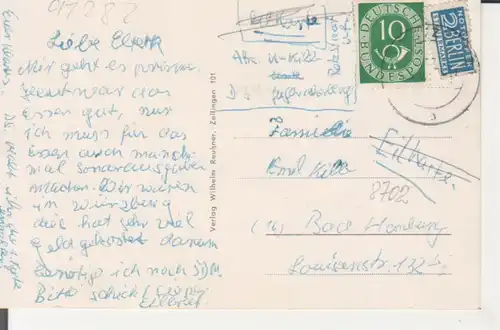 97282
Liebe Eltern
Mir geht es prima,
das
Essen gut, nur
ich muss für das
Essen auch manch-
mal Sonderausgaben
machen. Wir waren
in Würzburg
dies hat sehr viel
Geld gekostet darum
benötige ich noch 5DM.
Bitte schickt
Eilbrief
Euer
Verlag Wilhelm Reubner, Zellingen 101
Eilkarte
Abs. U. Kilb
Jugendherberg
Familie
Emil Kilb
Eilkarte.
8702
(16) Bad Homburg
Louisenstr. 132
DEUTSCHE
BUNDESPOST
10
NOTOPFER
2 BERLIN
STEUERMARKE